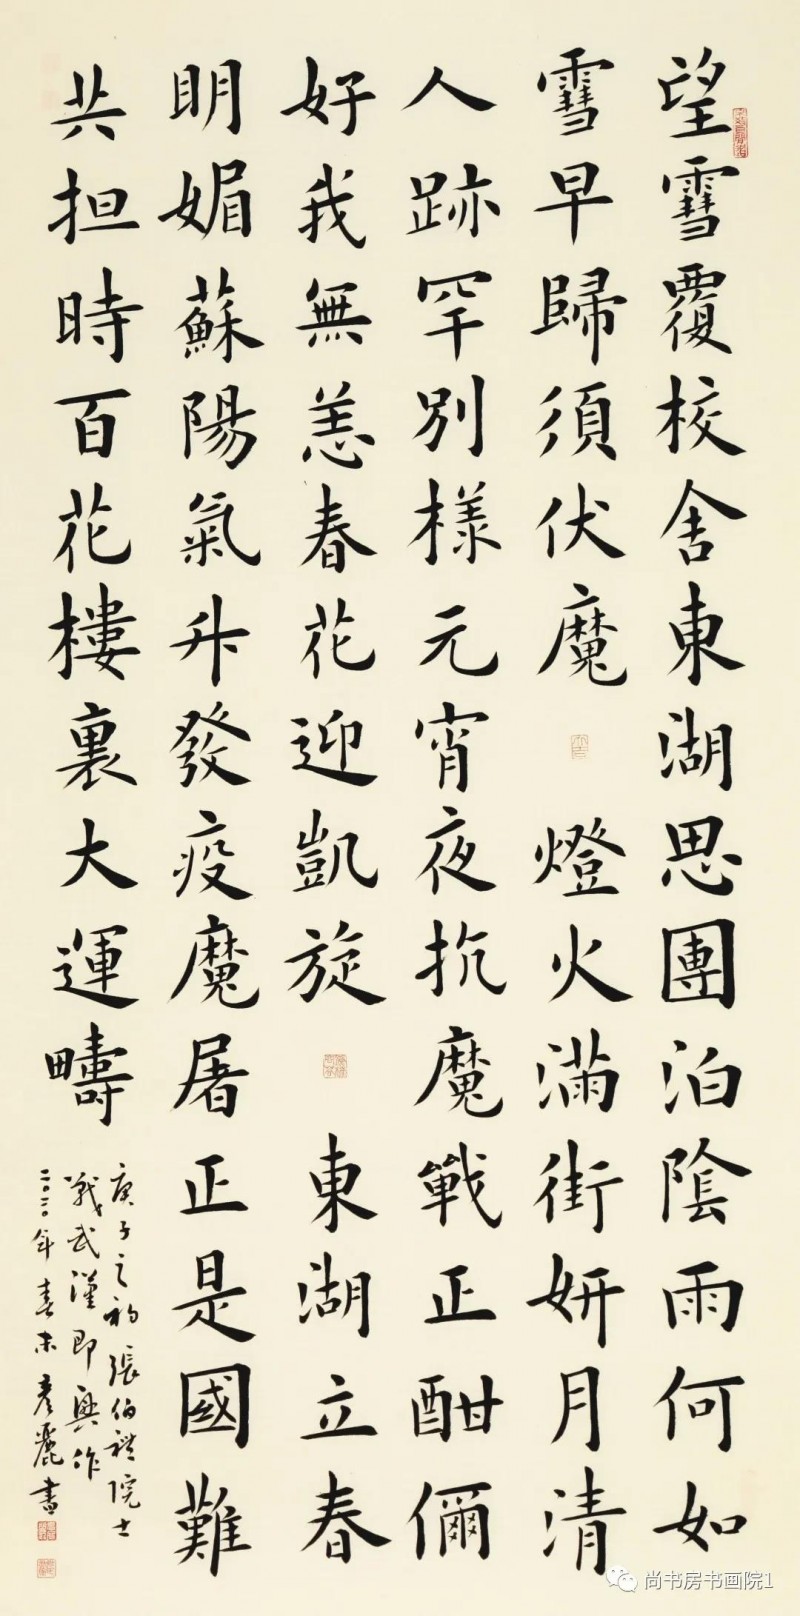 望雪覆校舍東湖思團泊陰雨何如
雪早歸須伏魔 燈火滿街妍月清
人跡罕別樣元宵夜抗魔戰正酣儞
好我無恙春花迎凱旋 東湖立春
明媚蘇陽氣升發疫魔屠正是國難
共担時百花樓裏大運疇
庚子之初張伯禮院士
戰武漢即興作
二〇二〇年春末彦麗書
尚书房书画院1